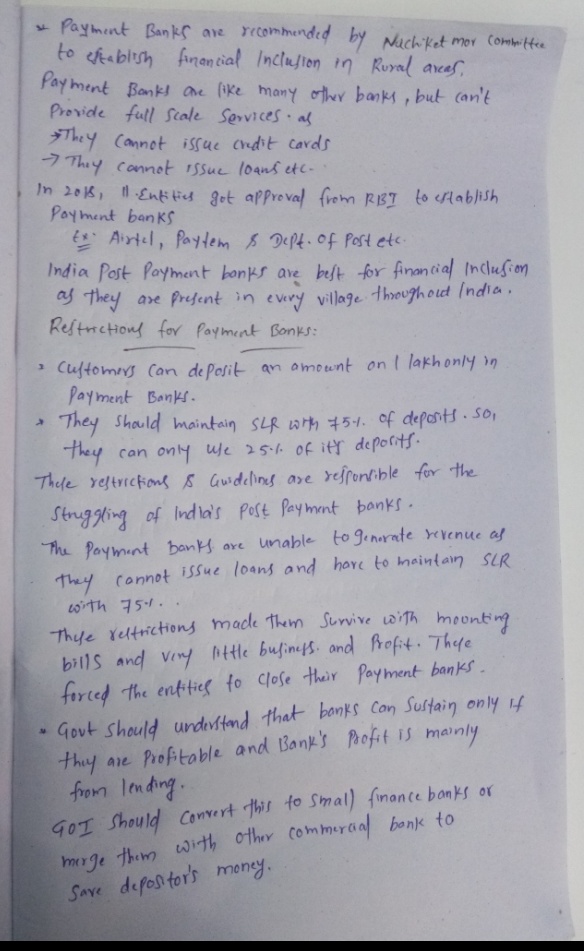 * Payment Banks are recommended by Nachiket mor Committee
to establish financial Inclusion in Rural areas.
Payment Banks are like many other banks, but can't
Provide full scale Services. as
→ They Cannot issue credit cards
→ They cannot issue loans etc.
In 2018, 11 Entities got approval from RBI to establish
Payment banks
Ex: Airtel, Paytem & Dept. of Post etc.
India Post Payment banks are best for financial Inclusion
as they are present in every village throughout India.
Restrictions for Payment Banks:
* Customers can deposit an amount on 1 lakh only in
Payment Banks.
* They should maintain SLR with 75%. of deposits. So,
they can only use 25%. of it's deposits.
These restrictions & Guidelines are responsible for the
struggling of India's Post Payment banks.
The Payment Banks are unable to generate revenue as
they cannot issue loans and have to maintain SLR
with 75%.
These restrictions made them Survive with mounting
bills and very little business. and Profit. These
forced the entities to close their Payment banks.
• Govt should understand that banks can Sustain only if
they are Profitable and Bank's Profit is mainly
from lending.
GOI should Convert this to Small finance banks or
merge them with other commercial bank to
Save depositor's money.